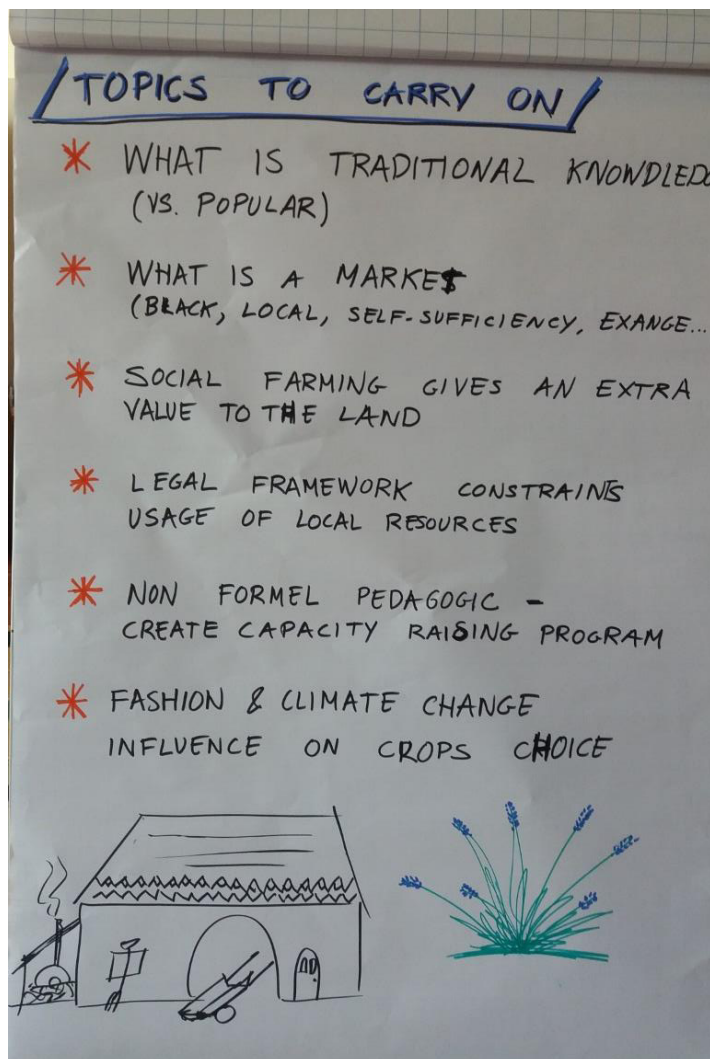 TOPICS TO CARRY ON
WHAT IS TRADITIONAL KNOWDLEDG
(VS. POPULAR)
WHAT IS A MARKET
(BLACK, LOCAL, SELF-SUFFICIENCY, EXANGE...
SOCIAL FARMING GIVES AN EXTRA
VALUE TO THE LAND
LEGAL FRAMEWORK CONSTRAINTS
USAGE OF LOCAL RESOURCES
NON FORMEL PEDAGOGIC -
CREATE CAPACITY RAISING PROGRAM
FASHION & CLIMATE CHANGE
INFLUENCE ON CROPS CHOICE